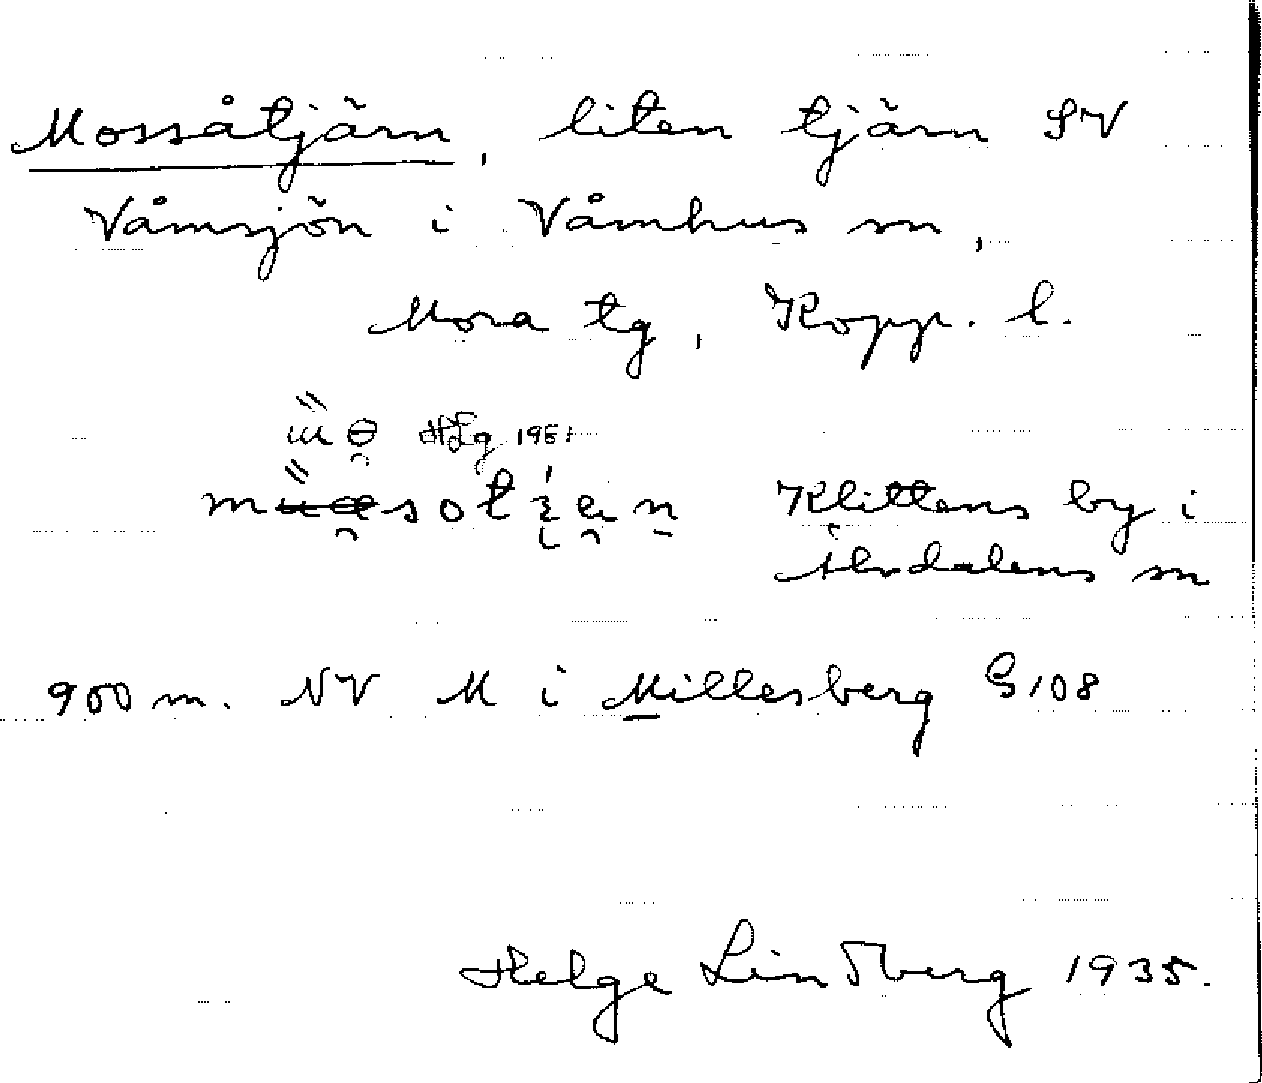 Mossåtjärn, liten tjärn SV
Våmsjön i Våmhus sn,
Mora tg, Kopp. l.
HLg
Klittens by i
Älvdalens sn
900 m. NV M i Millesberg S108
Helge Lindberg 1935.